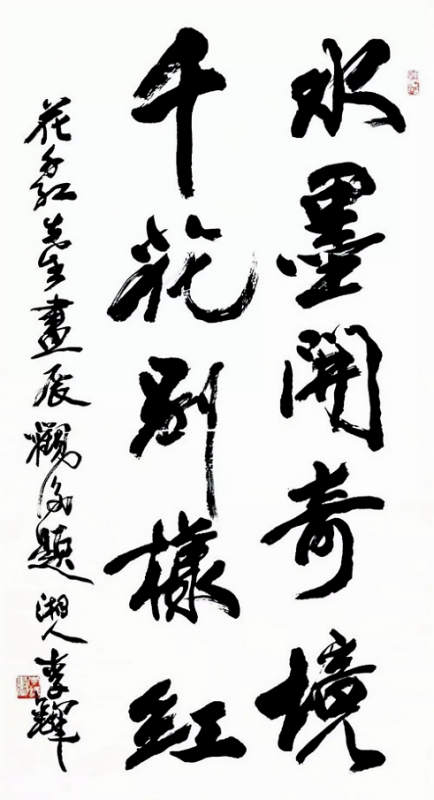 水墨開奇境
千花別樣紅
花千紅先生畫展觀後題 湘人李耀